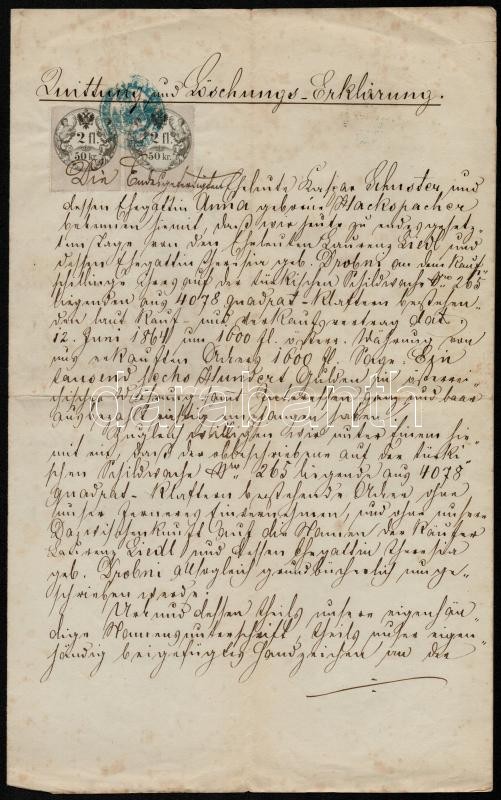 Quittung und Löschungs-Erklärung.
2 fl. 2 fl.
50 kr. 50 kr.
Die Endesgefertigten Eheleute Kaspar Schuster, und
dessen Ehegattin Anna geborne Hackspacher
bekennen hiemit, daß wir heute zu endesgesetz-
tem Tage von den Eheleuten Laurenz Liedl und
dessen Ehegattin Theresia geb. Drobni an dem Kauf-
schillinge ihres auf der türkischen Schildwache Nro 265
liegenden aus 4078 Quadrat-Klaftern bestehen-
den laut Kauf- und Verkaufsvertrag dat.
12. Juni 1864 um 1600 fl. österr. Währung von
uns erkauften Ackers 1600 fl. Sage: Ein
tausend Sechs Hundert Gulden in österrei-
chischer Währung samt Interessen ganz und baar
empfangen haben.
Zugleich willigen wir unter Einem hie-
mit ein, daß der obbeschriebene auf der türki-
schen Schildwache Nro 265 liegende aus 4078
Quadrat-Klaftern bestehende Acker ohne
unser ferneres Einvernehmen, und ohne unsere
Dazwischenkunft auf die Namen der Käufer
Laurenz Liedl, und dessen Ehegattin Theresia
geb. Drobni allsogleich grundbücherlich umge-
schrieben werde.
Urkund dessen theils unsere eigenhän-
dige Namensunterschrift, theils unser eigen-
händig beigefügtes Handzeichen an die
darabanth